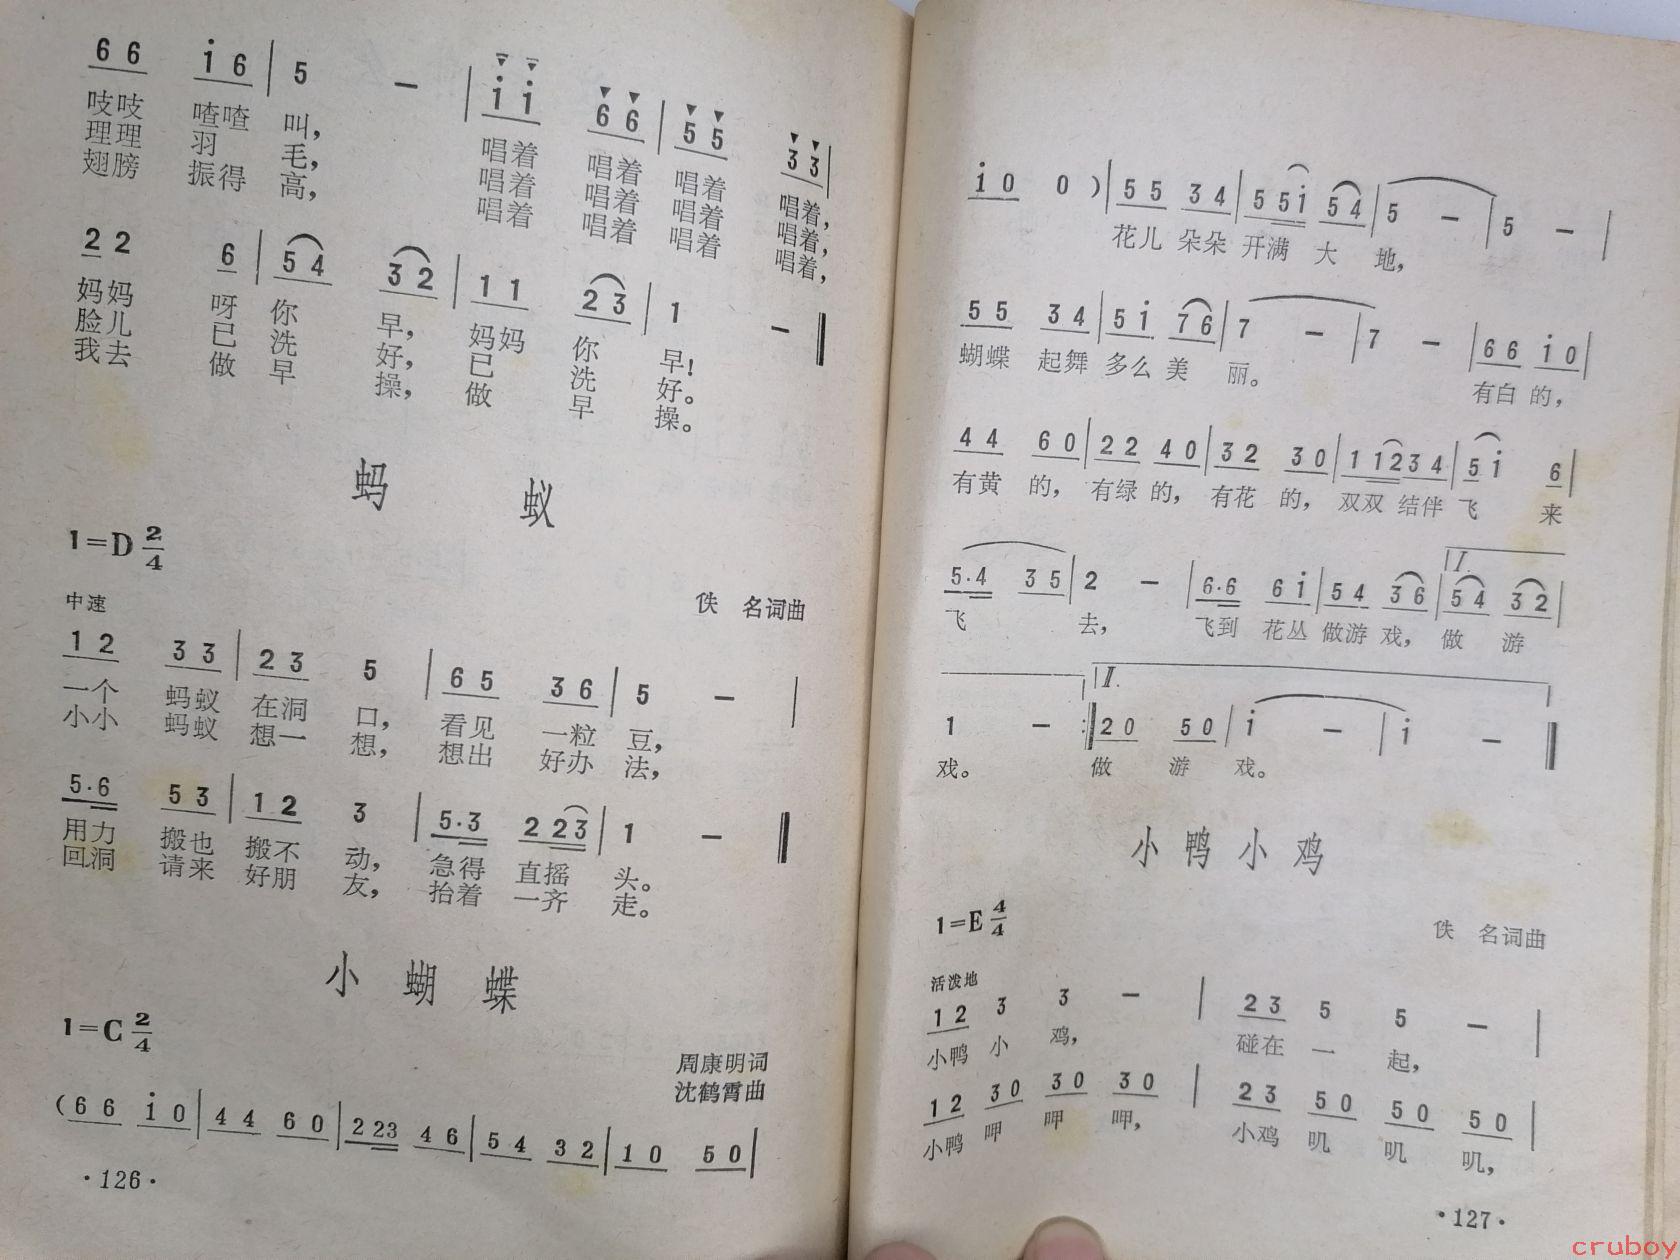 66 i6 | 5 - | ii 66 | 55 33 |
吱吱 喳喳 叫， 唱着 唱着 唱着 唱着，
理理 羽 毛， 唱着 唱着 唱着 唱着，
翅膀 振得 高， 唱着 唱着 唱着 唱着，
22 6 | 54 32 | 11 23 | 1 - ‖
妈妈 呀 你 早， 妈妈 你 早！
脸儿 已 洗 好， 已 洗 好。
我去 做 早 操， 做 早 操。
蚂 蚁
1=D 2/4
佚 名词曲
中速
12 33 | 23 5 | 65 36 | 5 - |
一个 蚂蚁 在洞 口， 看见 一粒 豆，
小小 蚂蚁 想一 想， 想出 好办 法，
5·6 53 | 12 3 | 5·3 223 | 1 - ‖
用力 搬也 搬不 动， 急得 直摇 头。
回洞 请来 好朋 友， 抬着 一齐 走。
小 蝴 蝶
1=C 2/4
周康明词
沈鹤霄曲
(66 i0 | 44 60 | 223 46 | 54 32 | 10 50 |
·126·
i0 0 ) | 55 34 | 55i 54 | 5 - | 5 - |
花儿 朵朵 开满 大 地，
55 34 | 5i 76 | 7 - | 7 - | 66 i0 |
蝴蝶 起舞 多么 美 丽。 有白 的，
44 60 | 22 40 | 32 30 | 112 34 | 5i 6 |
有黄 的， 有绿 的， 有花 的， 双双 结伴 飞 来
5·4 35 | 2 - | 6·6 6i | 54 36 | I. 54 32 |
飞 去， 飞到 花丛 做游 戏， 做 游
1 - :‖ II. 20 50 | i - | i - ‖
戏。 做 游 戏。
小 鸭 小 鸡
1=E 4/4
佚 名词曲
活泼地
12 3 3 - | 23 5 5 - |
小鸭 小 鸡， 碰在 一 起，
12 30 30 30 | 23 50 50 50 |
小鸭 呷 呷 呷， 小鸡 叽 叽 叽，
·127·
cruboy